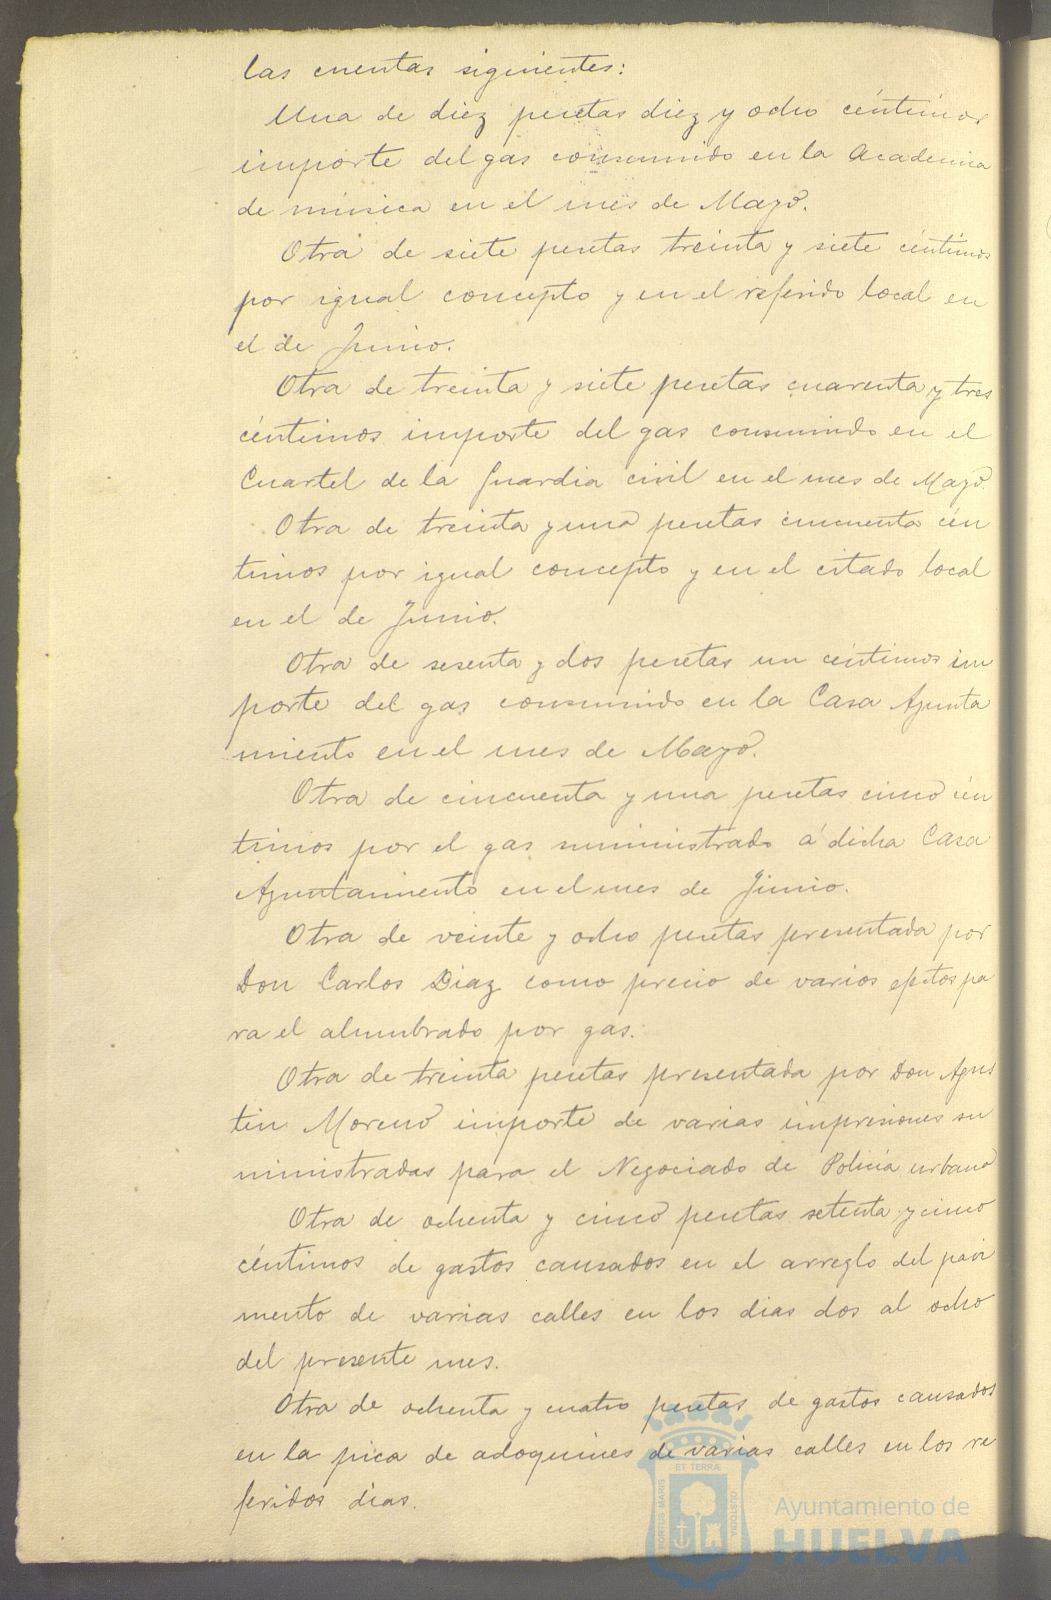 las cuentas siguientes:
Una de diez pesetas diez y ocho céntimos
importe del gas consumido en la Academia
de música en el mes de Mayo.
Otra de siete pesetas treinta y siete céntimos
por igual concepto y en el referido local en
el de Junio.
Otra de treinta y siete pesetas cuarenta y tres
céntimos importe del gas consumido en el
Cuartel de la Guardia civil en el mes de Mayo.
Otra de treinta y una pesetas cincuenta cén
timos por igual concepto y en el citado local
en el de Junio.
Otra de sesenta y dos pesetas un céntimos im
porte del gas consumido en la Casa Ayunta
miento en el mes de Mayo.
Otra de cincuenta y una pesetas cinco cén
timos por el gas suministrado á dicha Casa
Ayuntamiento en el mes de Junio.
Otra de veinte y ocho pesetas presentada por
Don Carlos Diaz como precio de varios efectos pa
ra el alumbrado por gas.
Otra de treinta pesetas presentada por Don Agus
tin Moreno importe de varias impresiones su
ministradas para el Negociado de Policía urbana
Otra de ochenta y cinco pesetas setenta y cinco
céntimos de gastos causados en el arreglo del pavi
mento de varias calles en los dias dos al ocho
del presente mes.
Otra de ochenta y cuatro pesetas de gastos causados
en la pica de adoquines de varias calles en los re
feridos dias.
PORTUS MARIS ET TERRÆ CUSTODIA
Ayuntamiento de
HUELVA